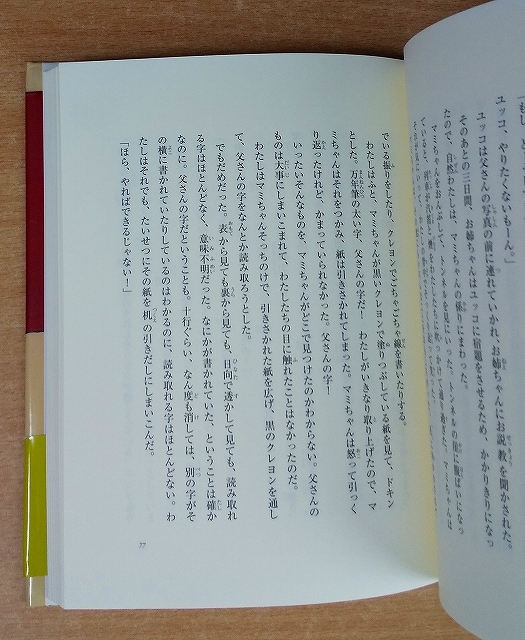 「もし、と
ユッコ、やりたくないもーん。」
ユッコは父さんの写真の前に連れていかれ、お姉ちゃんにお説教を聞かされた。
そのあとの三日間、お姉ちゃんはユッコに宿題をさせるため、かかりきりになっ
たので、自然わたしは、マミちゃんの係りにまわった。
マミちゃんをおんぶして、トンネルを見にいった。トンネルの
でいる振りをしたり、クレヨンでごちゃごちゃ線を書いたりする。
わたしはふと、マミちゃんが黒いクレヨンで塗りつぶしている紙を見て、ドキン
とした。万年筆の太い字、父さんの字だ！　わたしがいきなり取り上げたので、マ
ミちゃんはそれをつかみ、紙は引きさかれてしまった。マミちゃんは怒って引っく
り返ったけれど、かまっていられなかった。父さんの字！
いったいそんなものを、マミちゃんがどこで見つけたのかわからない。父さんの
ものは大事にしまいこまれて、わたしたちの目に触れたことはなかったのだ。
わたしはマミちゃんそっちのけで、引きさかれた紙を広げ、黒のクレヨンを通し
て、父さんの字をなんとか読み取ろうとした。
でもだめだった。表から見ても裏から見ても、日向で透かして見ても、読み取れ
る字はほとんどなく、意味不明だった。なにかが書かれていた、ということは確か
なのに。父さんの字だということも。十行ぐらい、なん度も消しては、別の字がそ
の横に書かれていたりしているのはわかるのに、読み取れる字はほとんどない。わ
たしはそれでも、たいせつにその紙を机の引きだしにしまいこんだ。
「ほら、やればできるじゃない！」
77